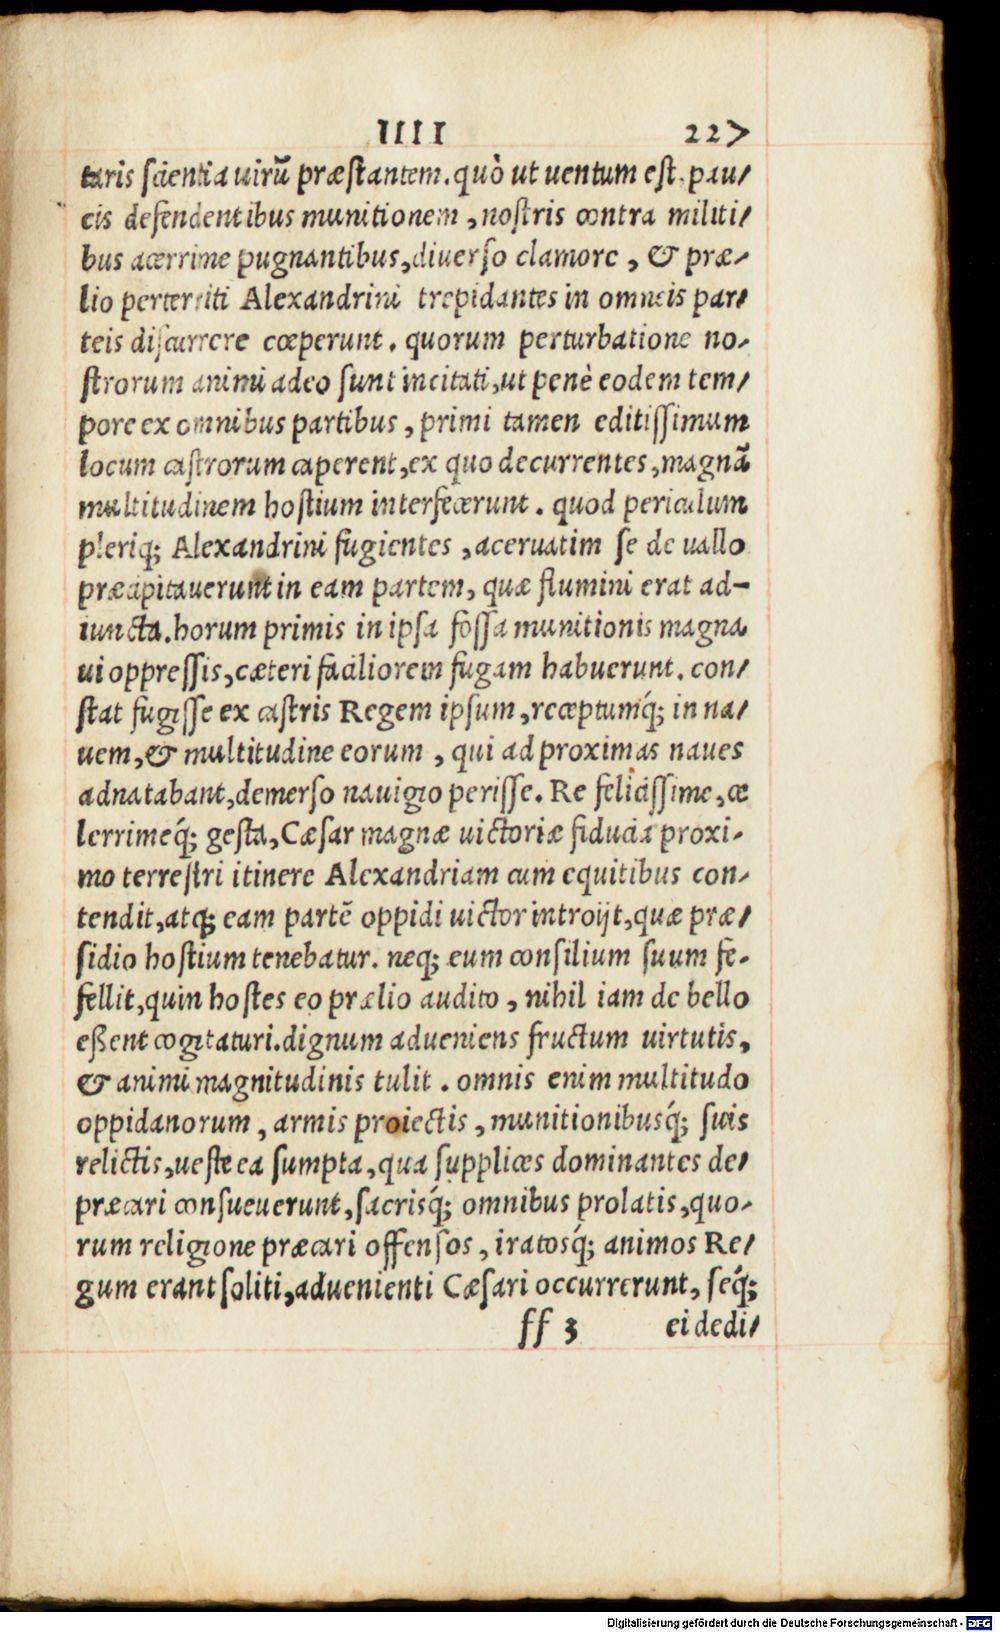 IIII 227
taris scientia uirũ præstantem. quò ut uentum est. pau/
cis defendentibus munitionem, nostris contra militi/
bus acerrime pugnantibus, diuerso clamore, & præ-
lio perterriti Alexandrini trepidantes in omneis par/
teis discurrere cœperunt. quorum perturbatione no-
strorum animi adeo sunt incitati, ut penè eodem tem/
pore ex omnibus partibus, primi tamen editissimum
locum castrorum caperent, ex quo decurrentes, magnã
multitudinem hostium interfecerunt. quod periculum
pleriq; Alexandrini fugientes, aceruatim se de uallo
præcipitauerunt in eam partem, quæ flumini erat ad-
iuncta. horum primis in ipsa fossa munitionis magna
ui oppressis, cæteri faciliorem fugam habuerunt. con/
stat fugisse ex castris Regem ipsum, receptumq́; in na/
uem, & multitudine eorum, qui ad proximas naues
adnatabant, demerso nauigio perisse. Re felicissime, ce
lerrimeq́; gesta, Cæsar magnæ uictoriæ fiducia proxi-
mo terrestri itinere Alexandriam cum equitibus con-
tendit, atq; eam partẽ oppidi uictor introijt, quæ præ/
sidio hostium tenebatur. neq; eum consilium suum fe-
fellit, quin hostes eo prælio audito, nihil iam de bello
eßent cogitaturi. dignum adueniens fructum uirtutis,
& animi magnitudinis tulit. omnis enim multitudo
oppidanorum, armis proiectis, munitionibusq́; suis
relictis, ueste ea sumpta, qua supplices dominantes de/
præcari consueuerunt, sacrisq́; omnibus prolatis, quo-
rum religione præcari offensos, iratosq́; animos Re/
gum erant soliti, aduenienti Cæsari occurrerunt, seq́;
ff 3 ei dedi/
Digitalisierung gefördert durch die Deutsche Forschungsgemeinschaft - DFG